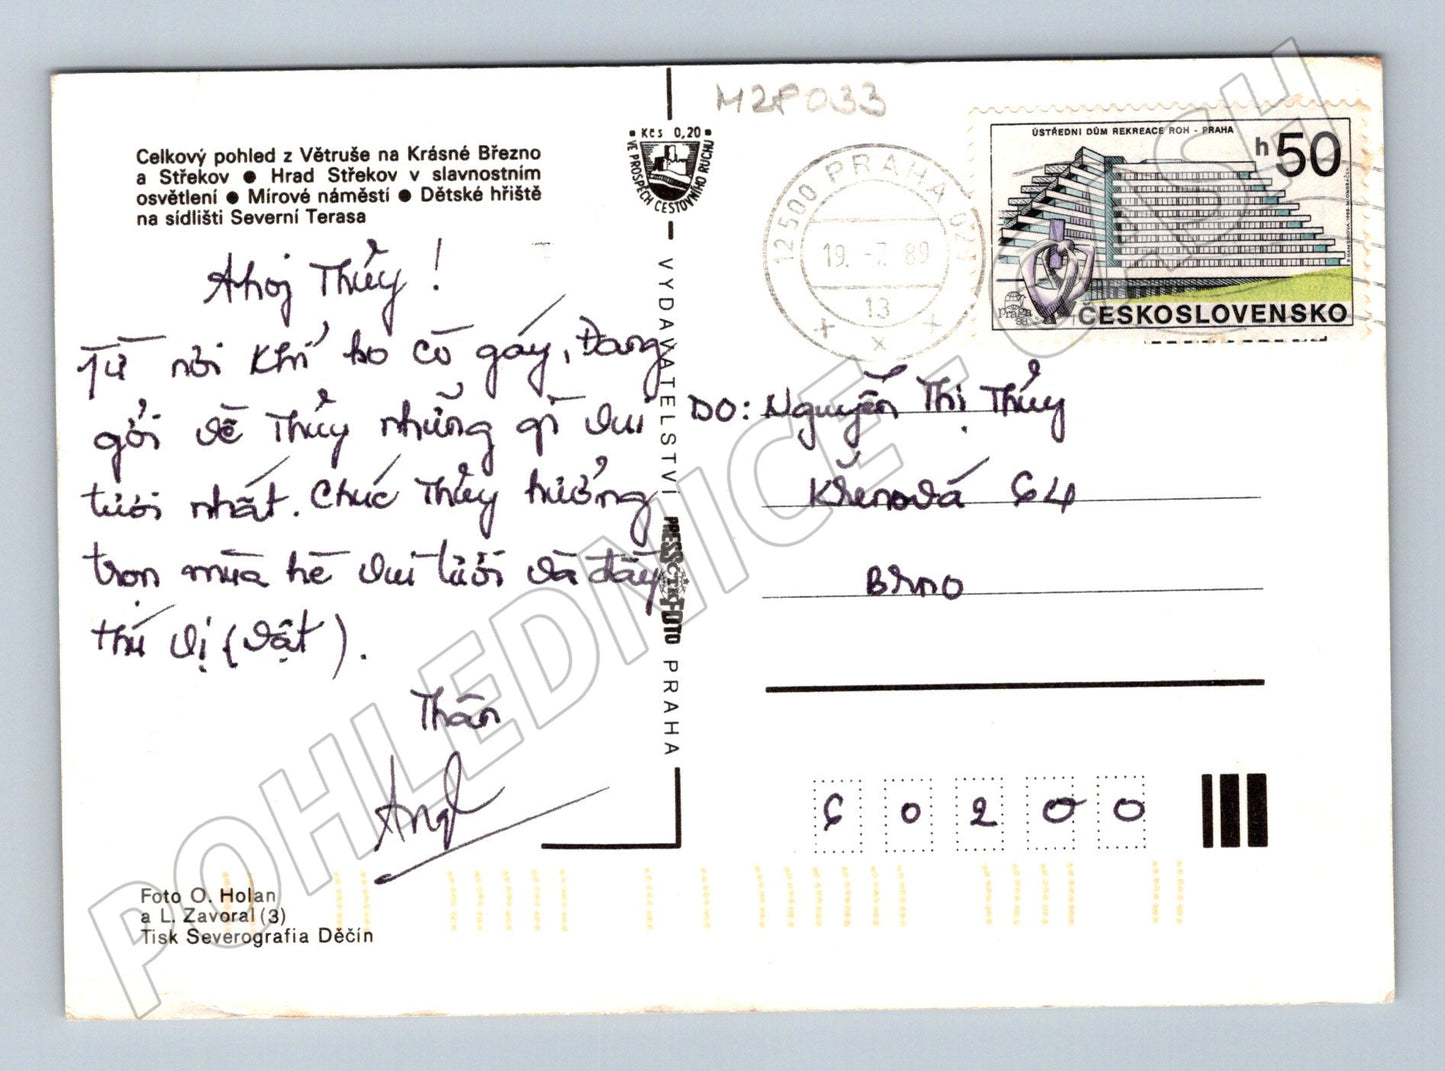 M2P033
Celkový pohled z Větruše na Krásné Březno
a Střekov ● Hrad Střekov v slavnostním
osvětlení ● Mírové náměstí ● Dětské hřiště
na sídlišti Severní Terasa
Kčs 0,20
VE PROSPĚCH CESTOVNÍHO RUCHU
12500 PRAHA 025
19. -7. 89
13
ÚSTŘEDNÍ DŮM REKREACE ROH - PRAHA
h 50
praga
88
ČESKOSLOVENSKO
Ahoj Thủy!
Từ nơi khỉ ho cò gáy, Đang
gởi về Thủy những gì vui
tươi nhất. Chúc Thủy hưởng
trọn mùa hè vui tươi và đầy
thú vị (vật).
Thân
VYDAVATELSTVÍ PRESSFOTO PRAHA
ČTK
DO: Nguyễn Thị Thủy
Křenová 64
Brno
60200
Foto O. Holan
a L. Zavoral (3)
Tisk Severografia Děčín
POHLEDNICE - CASH